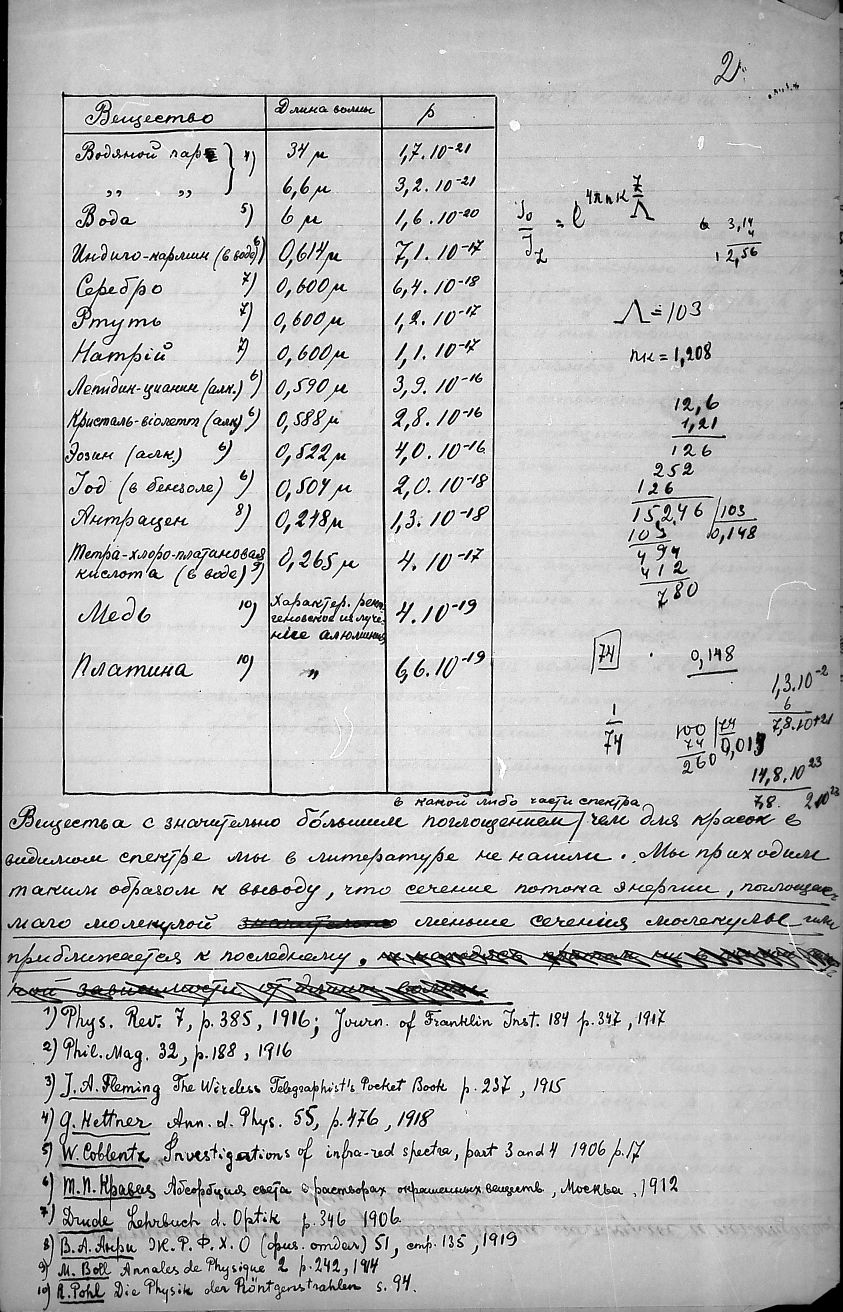 2
Вещество Длина волны p
Водяной пар 4) 34 μ 1,7.10⁻²¹
„ „ 6,6 μ 3,2.10⁻²¹
Вода 5) 6 μ 1,6.10⁻²⁰
Индиго-кармин (в воде) 6) 0,614 μ 7,1.10⁻¹⁷
Серебро 7) 0,600 μ 6,4.10⁻¹⁸
Ртуть 7) 0,600 μ 1,2.10⁻¹⁷
Натрій 7) 0,600 μ 1,1.10⁻¹⁷
Лепидин-цианин (алк.) 6) 0,590 μ 3,9.10⁻¹⁶
Кристаль-віолетт (алк) 6) 0,588 μ 2,8.10⁻¹⁶
Эозин (алк) 6) 0,522 μ 4,0.10⁻¹⁶
Іод (в бензоле) 6) 0,504 μ 2,0.10⁻¹⁸
Антрацен 8) 0,248 μ 1,3.10⁻¹⁸
Тетра-хлоро-платиновая
кислота (в воде) 9) 0,265 μ 4.10⁻¹⁷
Медь 10) Характер. рент-
геновское излуче-
ніе алюминия 4.10⁻¹⁹
Платина 10) „ 6,6.10⁻¹⁹
J₀
J_L = e^4πnκ Z/Λ
6 3,14
4
12,56
Λ=103
nκ = 1,208
12,6
1,21
126
252
126
15,246 103
103 0,148
494
412
780
74 . 0,148
1
74
100 74
74 0,013
260
1,3.10⁻²
6
7,8.10⁺²¹
14,8.10²³
7,8. 2.10²³
в какой либо части спектра
Вещества с значительно бо́льшим поглощением чем для красок в
видимом спектре мы в литературе не нашли. Мы приходим
таким образом к выводу, что сечение потока энергии, поглощае-
маго молекулой значительно меньше сечения молекулы или
приближается к последнему.
кой зависимости от длины волны
1) Phys. Rev. 7, p. 385, 1916; Journ. of Franklin Inst. 184 p. 347, 1917
2) Phil. Mag. 32, p. 188, 1916
3) J. A. Fleming The Wireless Telegraphist's Pocket Book p. 237, 1915
4) G. Hettner Ann. d. Phys. 55, p. 476, 1918
5) W. Coblentz Investigations of infra-red spectra, part 3 and 4 1906 p. 17
6) Т. П. Кравец Абсорбция света в растворах окрашенных веществ, Москва, 1912
7) Drude Lehrbuch d. Optik p. 346 1906
8) В. А. Анри Ж. Р. Ф. Х. О (физ. отдел) 51, стр. 135, 1919
9) M. Boll Annales de Physique 2 p. 242, 1914
10) R. Pohl Die Physik der Röntgenstrahlen s. 94.